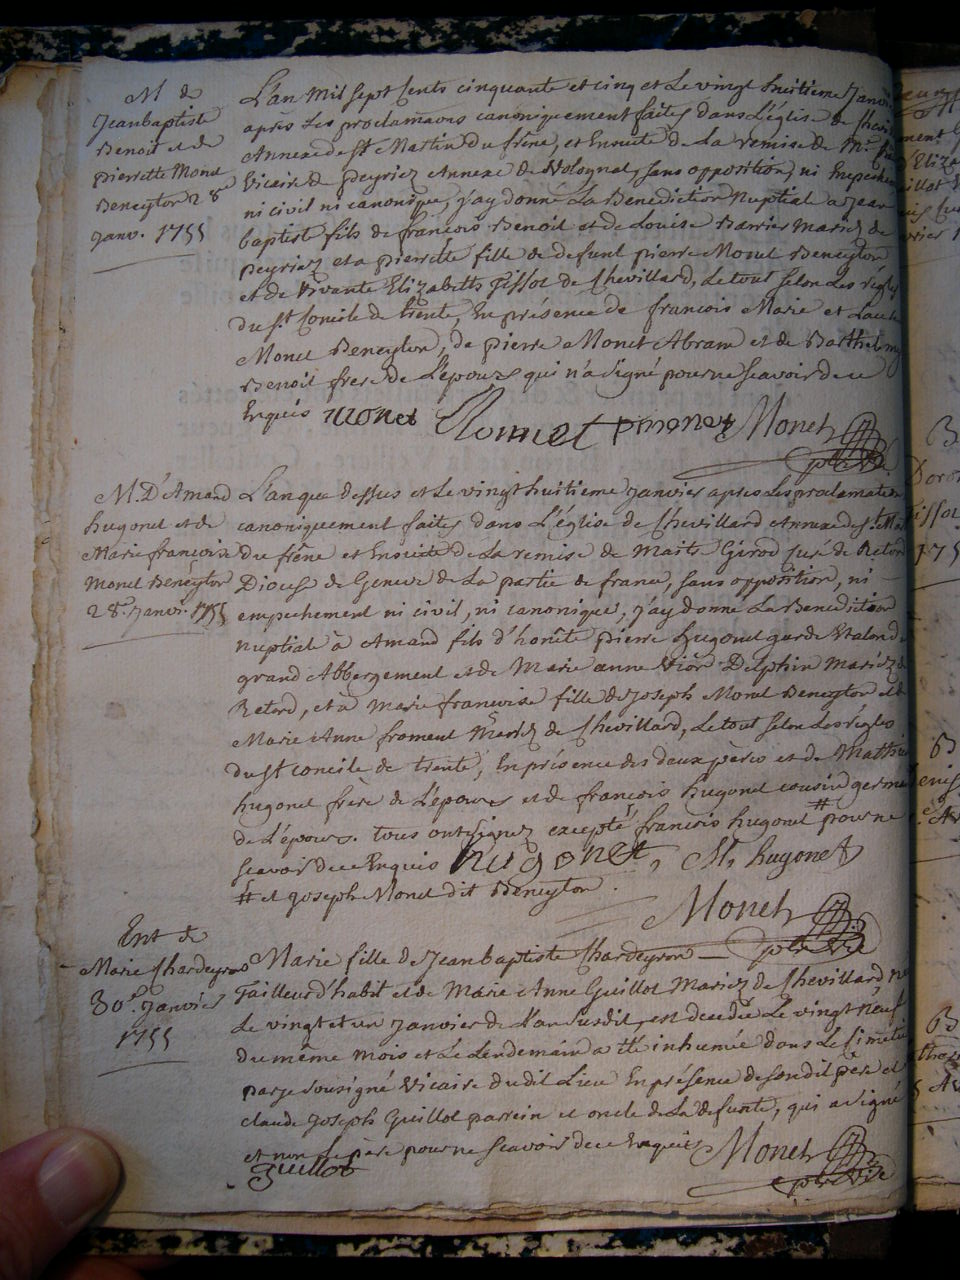 M de
Jeanbaptiste
Benoit et de
pierrette Monet
Beneyton 28e
Janv. 1755
L'an Mil sept Cents cinquante et cinq et Le vingt huitieme Janvi
après Les proclamaons canoniquement faites dans L'église de Chevi
Annexe de st Martin du frêne, et Ensuite de La remise de Mre
Vicaire de peyriez Annexe de Volognat, sans opposition, ni Empeche
ni civil ni canonique, j'ay donné La Benediction Nuptiale a Jean
baptist fils de francois Benoit et de Louise Barrier Mariez de
peyriez et a pierrette fille de defunt pierre Monet Beneyton
et de Vivante Elizabeth Tissot de Chevillard, Le tout selon Les règles
du st Concile de trente, En présence de francois Marie et Laurent
Monet Beneyton, de pierre Monet Abram et de Barthelemy
Benoit frere de L'epoux qui n'a signé pour ne scavoir de ce
Enquis Monet Monnet p monet Monet
ptre Vic
M. D'Amand
hugonet et de
Marie françoise
Monet Beneyton
28e Janvi. 1755
L'an que dessus et Le vingt huitieme Janvier apres Les proclamations
canoniquement faites dans L'église de Chevillard Annexe de st Mar
du frêne et Ensuite de La remise de Maitre Girod curé de Retord
Diocese de Geneve de La partie de france, sans opposition, ni
empechement ni civil, ni canonique, j'ay donne La Benediction
nuptiale à Amand fils d'honête pierre hugonet garde Etalon de
grand Abbergement et de Marie anne Delphin Mariez de
Retord, et a Marie francoise fille de Joseph Monet Beneyton et de
Marie Anne froment Mariez de Chevillard, Le tout selon Les règles
du st concile de trente, En présence des deux pères et de Mathieu
hugonet frère de L'epoux et de francois hugonet cousin germain
de L'epoux. tous ont signez excepté francois hugonet # pour ne
scavoir de ce Enquis hugonet, M, hugonet
# et Joseph Monet dit Beneyton.
Monet
ptre Vic
Ent de
Marie Chardeyron
30e Janvier
1755
Marie fille de Jeanbaptiste Chardeyron —
Tailleur d'habit et de Marie Anne Guillot Mariez de Chevillard
Le vingt et un Janvier de L'an Susdit, est decedée Le vingt neuf
du même mois et Le Lendemain a été inhumée dans Le Cimetie
par je sousigné Vicaire dudit Lieu En présence de sondit père et
claude Joseph Guillot parrein et oncle de La defunte, qui a signé
et non Le père pour ne scavoir de ce Enquis Monet
guillot
ptre Vic